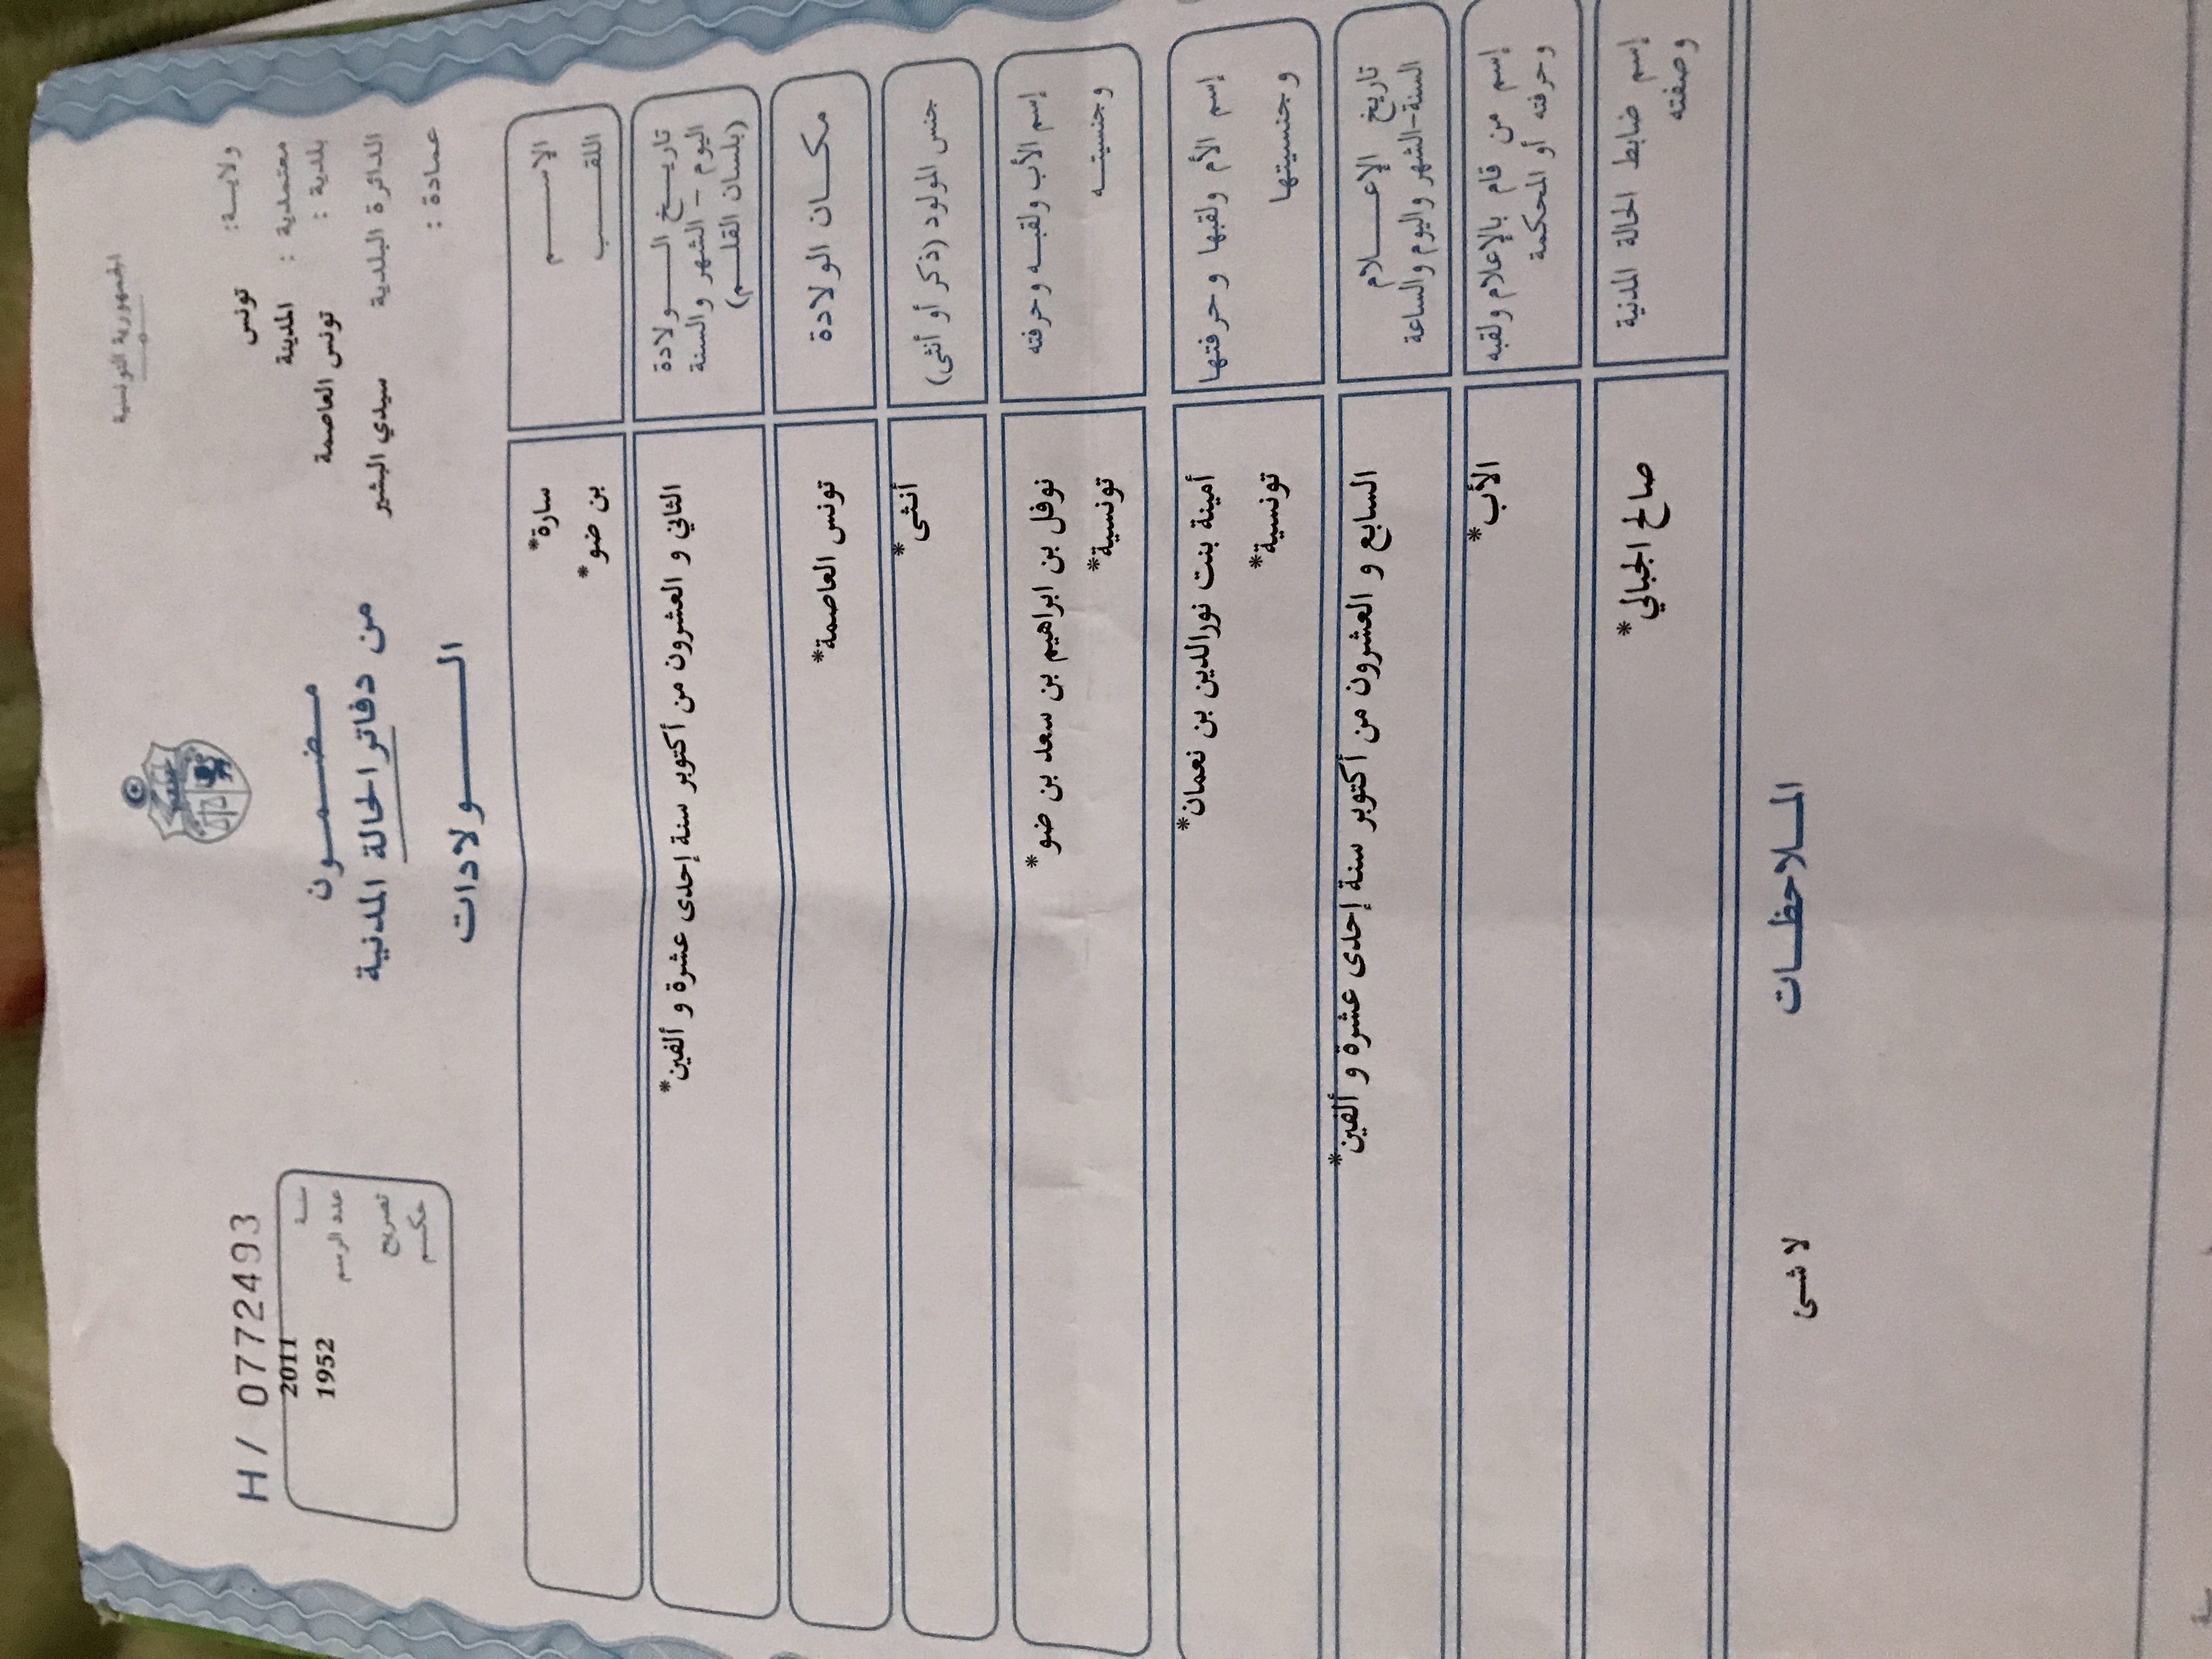 الجمهورية التونسية
ولايـة: تونس
معتمدية : المدينة
بلدية : تونس العاصمة
الدائرة البلدية سيدي البشير
عمادة :
مـضـمـون
من دفاتر الحالة المدنية
الـولادات
H/ 0772493
سنـة 2011
عدد الرسم 1952
تصريح
حكم
الإسـم سارة*
اللقـب بن ضو*
تاريـخ الـولادة
اليوم - الشهر والسنة
(بلسان القلـم)
الثاني و العشرون من أكتوبر سنة إحدى عشرة و ألفين*
مكـان الولادة تونس العاصمة*
جنس المولود (ذكر أو أنثى) أنثى*
إسم الأب ولقبـه وحرفته نوفل بن ابراهيم بن سعد بن ضو*
وجنسيتـه تونسية*
إسم الأم ولقبها وحرفتها أمينة بنت نورالدين بن نعمان*
وجنسيتها تونسية*
تاريخ الإعـلام
السنة-الشهر واليوم والساعة
السابع و العشرون من أكتوبر سنة إحدى عشرة و ألفين*
إسم من قام بالإعلام ولقبه
وحرفته أو المحكمة
الأب*
إسم ضابط الحالة المدنية
وصفته
صالح الجبالي*
المـلاحظـات
لا شئ